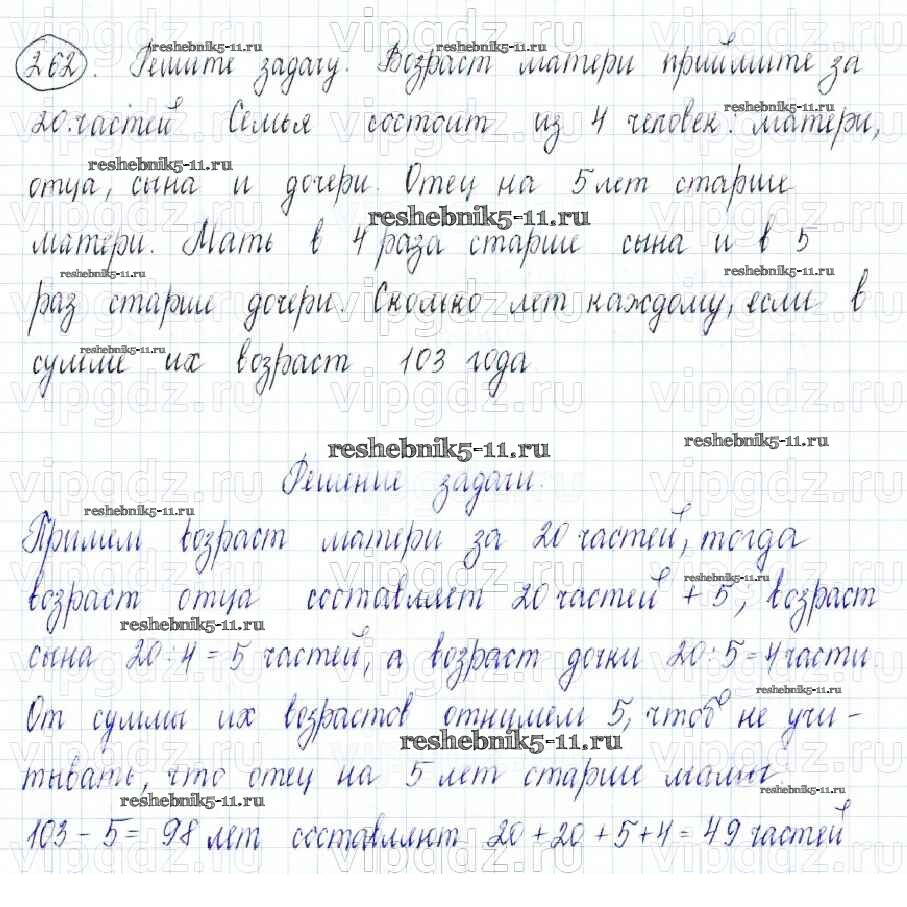 262. Решите задачу. Возраст матери приймите за
20 частей Семья состоит из 4 человек: матери,
отца, сына и дочери. Отец на 5 лет старше
матери. Мать в 4 раза старше сына и в 5
раз старше дочери. Сколько лет каждому, если в
сумме их возраст 103 года
Решение задачи.
Примем возраст матери за 20 частей, тогда
возраст отца составляет 20 частей + 5, возраст
сына 20:4=5 частей, а возраст дочки 20:5=4 части.
От суммы их возрастов отнимем 5, чтоб не учи-
тывать, что отец на 5 лет старше мамы.
103-5= 98 лет составляют 20+20+5+4=49 частей